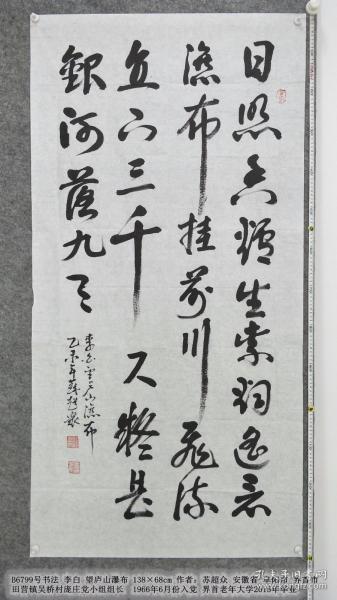 日照香爐生紫烟遥看
瀑布挂前川飛流
直下三千尺疑是
銀河落九天
李白望庐山瀑布
乙未年蘇超众
B6799号书法 李白 望庐山瀑布 138×68cm 作者：苏超众 安徽省 阜阳市 界首市
田营镇吴桥村庞庄党小组组长 1966年6月份入党 界首老年大学2013年毕业